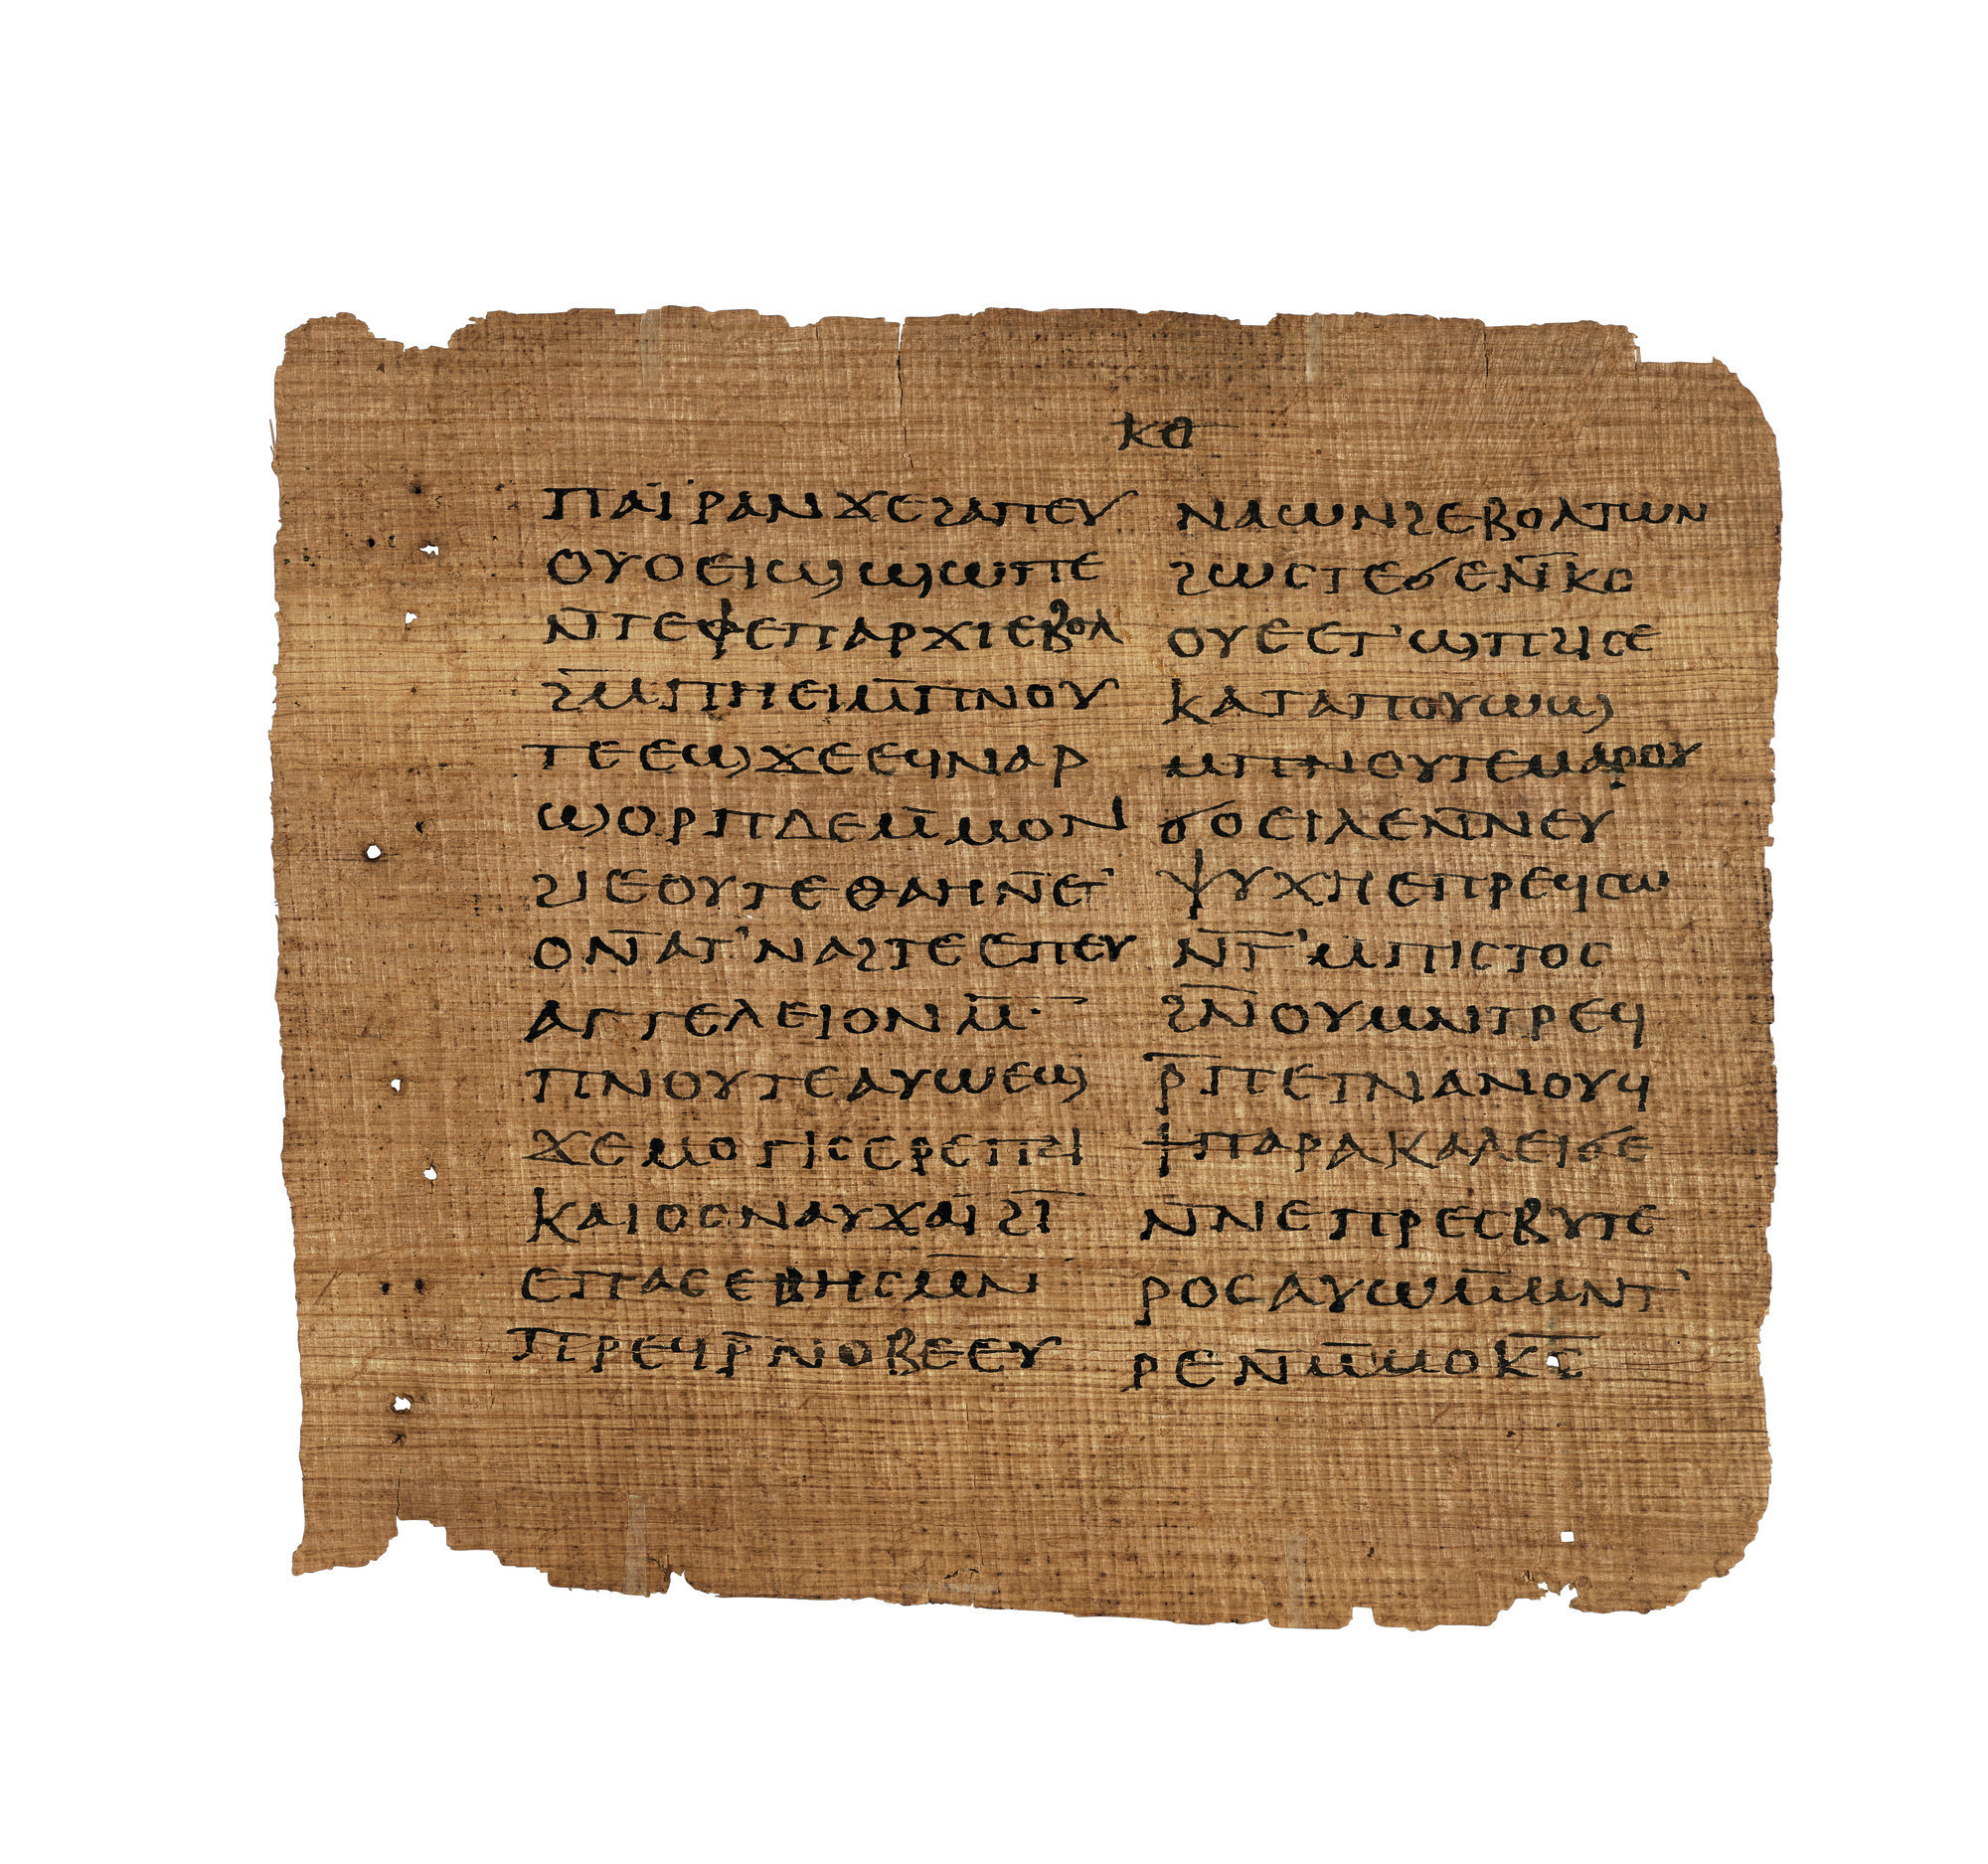 ⲕⲑ
ⲡⲁⲓ̈ⲣⲁⲛϫⲉϩⲁⲡⲉⲩ
ⲟⲩⲟⲉⲓϣϣⲱⲡⲉ
ⲛ̄ⲧⲉϥⲉⲡⲁⲣⲭⲓⲉⲃⲟⲗ
ϩⲙ̄ⲡⲏⲉⲓⲙ̄ⲡⲛⲟⲩ
ⲧⲉⲉϣϫⲉⲉϥⲛⲁⲣ
ϣⲟⲣⲡⲇⲉⲙ̄ⲙⲟⲛ
ϩⲓⲉⲟⲩⲧⲉⲑⲁⲏⲛ̄ⲉⲧ'
ⲟⲛ̄ⲁⲧ'ⲛⲁϩⲧⲉⲉⲡⲉⲩ
ⲁⲅⲅⲉⲗⲉⲓⲟⲛⲙ̄·
ⲡⲛⲟⲩⲧⲉⲁⲩⲱⲉϣ
ϫⲉⲙⲟⲅⲓⲥⲉⲣⲉⲡⲇⲓ
ⲕⲁⲓⲟⲥⲛⲁⲩϫⲁⲓ̈ϩⲓ̈
ⲉⲡⲁⲥⲉⲃⲏⲥⲙⲛ̄
ⲡⲣⲉϥⲣ̄ⲛⲟⲃⲉⲉⲩ
ⲛⲁⲱⲛϩⲉⲃⲟⲗⲧⲱⲛ
ϩⲱⲥⲧⲉϭⲉⲛ̄ⲕⲟ
ⲟⲩⲉⲉⲧ'ϣⲡϩⲓⲥⲉ
ⲕⲁⲧⲁⲡⲟⲩⲱϣ
ⲙⲡⲛⲟⲩⲧⲉⲙⲁⲣⲟⲩ
ϭⲟⲉⲓⲗⲉⲛ̄ⲛⲉⲩ
ⲯⲩⲭⲏⲉⲡⲣⲉϥⲥⲱ
ⲛ̄ⲧ̄'ⲙⲡⲓⲥⲧⲟⲥ
ϩⲛ̄ⲟⲩⲙⲛⲧⲣⲉϥ
ⲣ̄ⲡⲉⲧⲛⲁⲛⲟⲩϥ
ϯⲡⲁⲣⲁⲕⲁⲗⲉⲓϭⲉ
ⲛ̄ⲛⲉⲡⲣⲉⲥⲃⲩⲧⲉ
ⲣⲟⲥⲁⲩⲱⲙ̄ⲙⲛⲧ'
ⲣⲉⲛ̄ⲙ̄ⲙⲟⲕ̄ⲥ̄